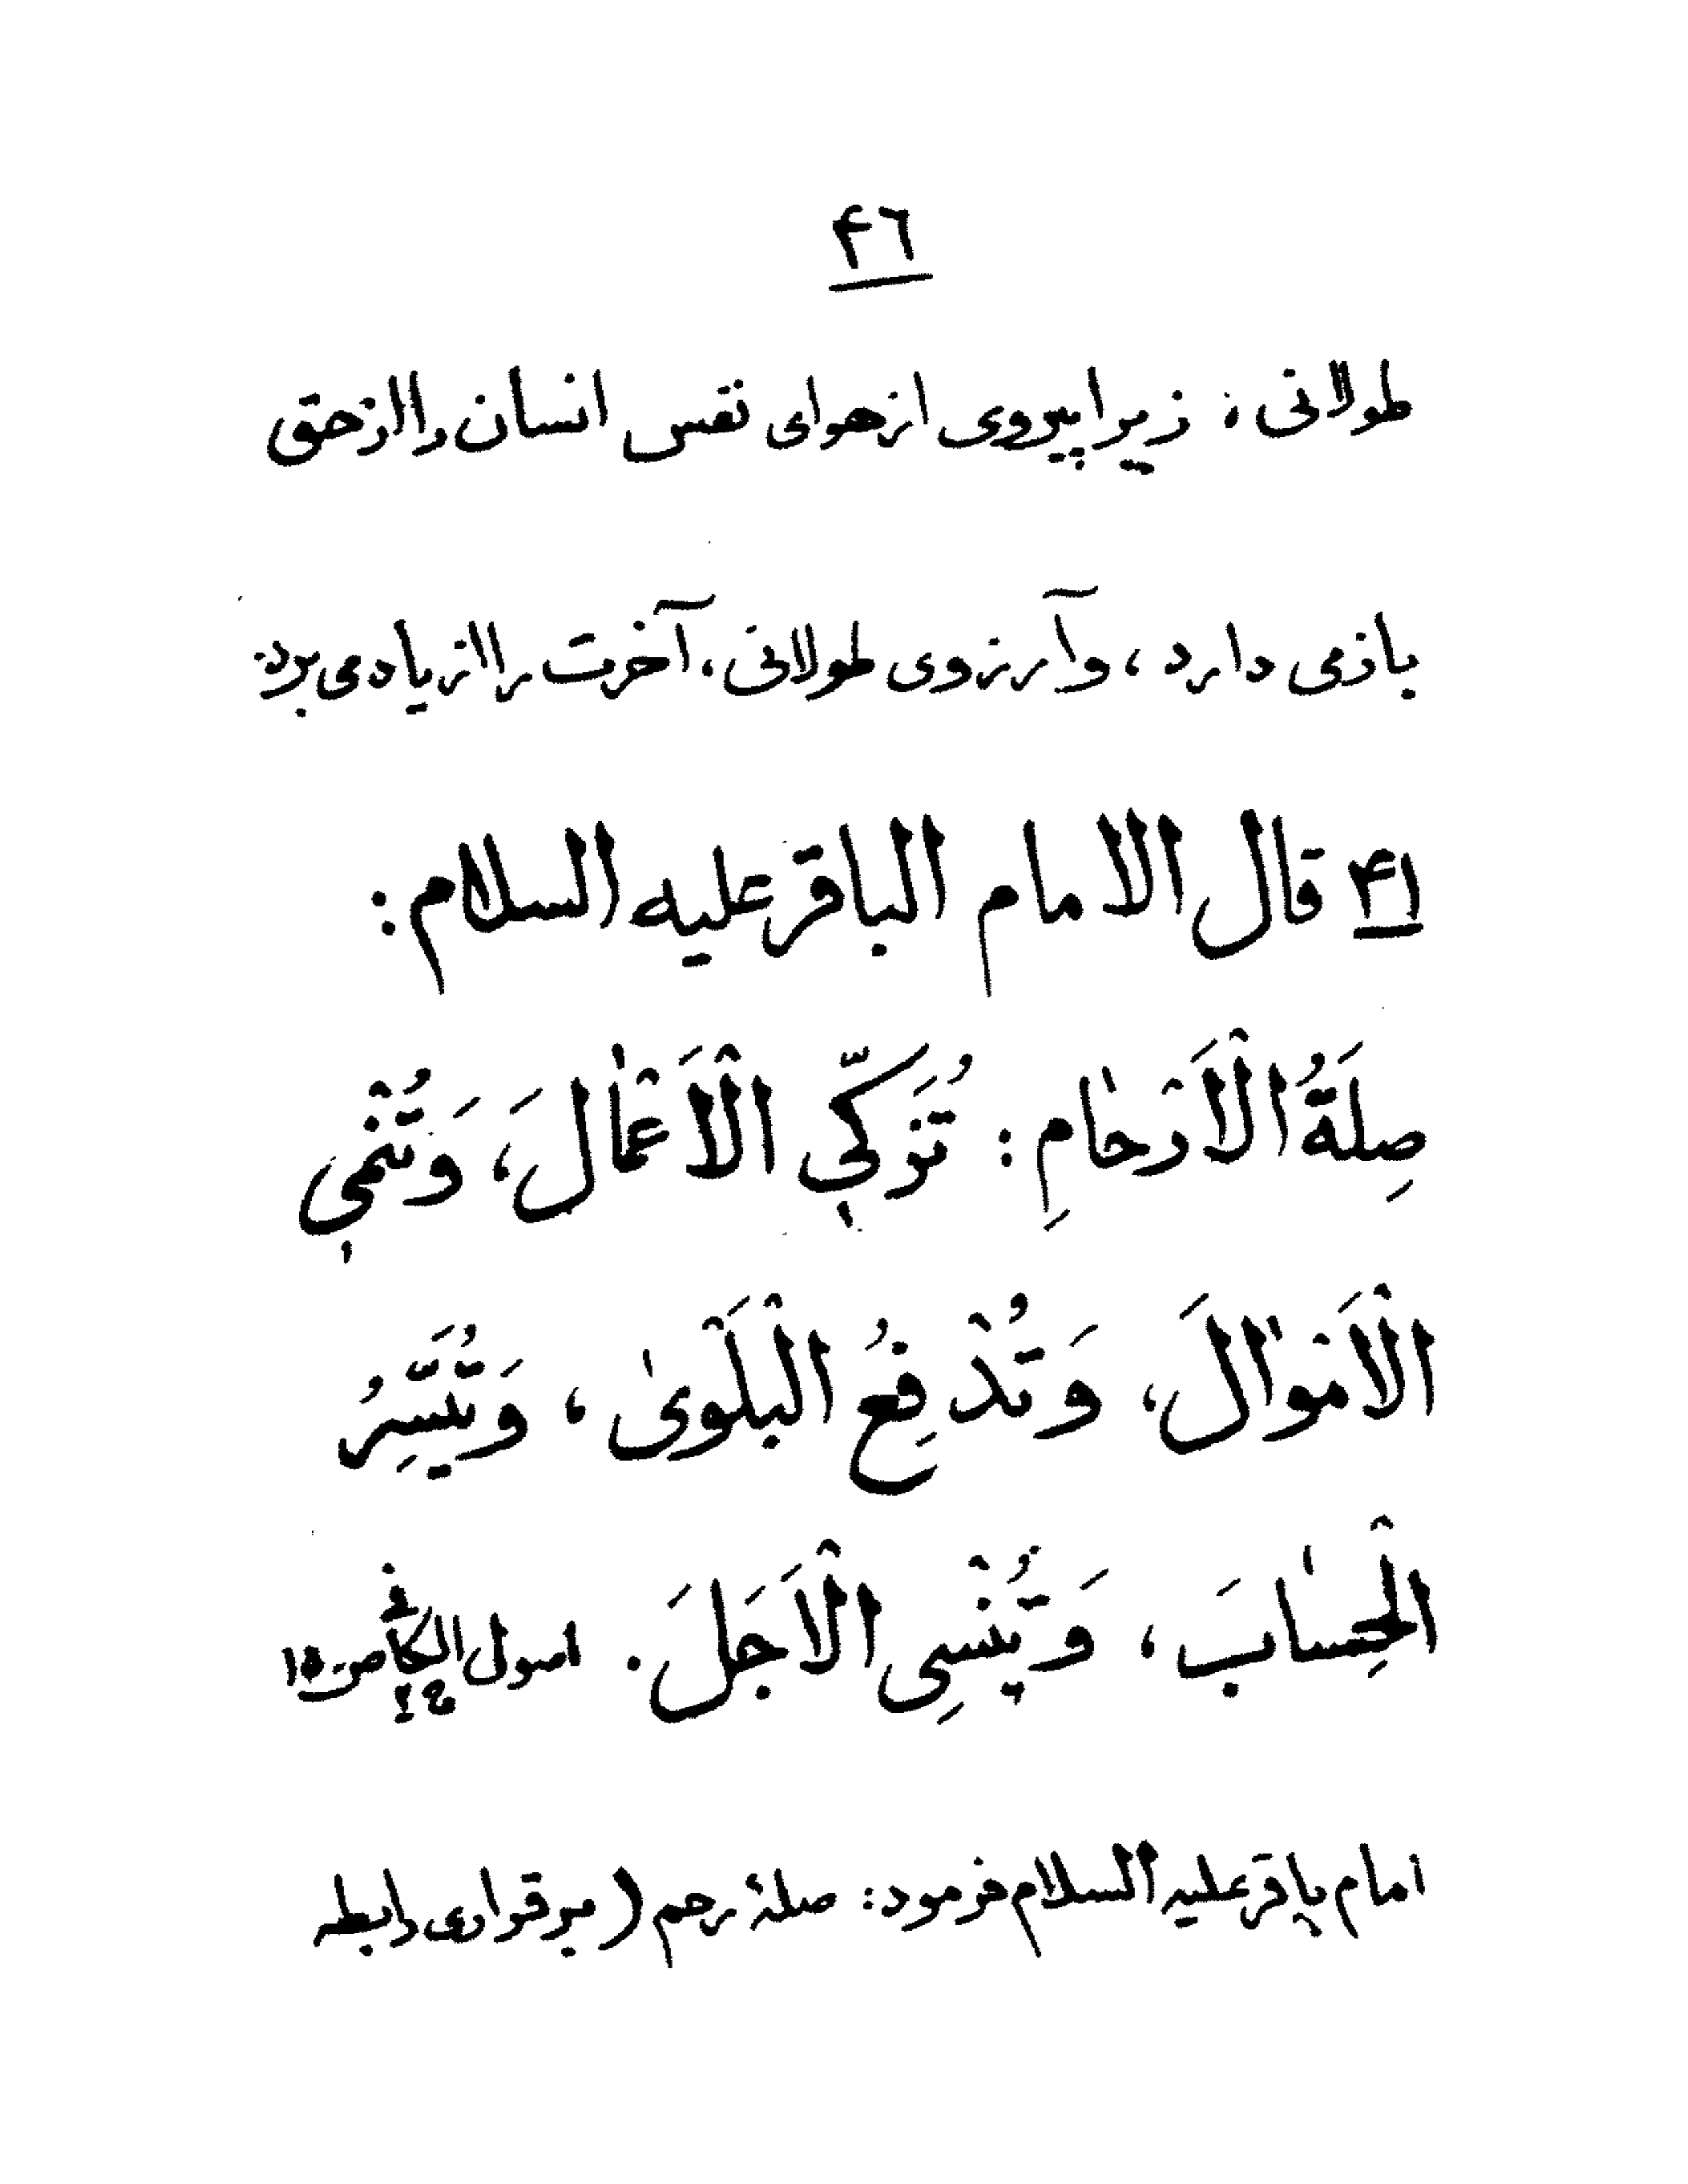 ۴۶
طولانی، زیرا پیروی از هوای نفس انسان را از حق
بازمی دارد، و آرزوی طولانی، آخرت را از یاد می برد.
۴۱ قال الامام الباقر علیه السلام:
صِلَةُ الْاَرْحٰامِ: تُزَکّي الْاَعْمٰالَ، وَ تُنْمي
الْاَمْوٰالَ، وَ تُدْفِعُ الْبَلْوىٰ، وَ تُيَسِّرُ
الْحِسٰابَ، وَ تُنْسِی الْاَجَلَ. اصول الکافی ج ۲ ص ۱۵۰
امام باقر علیه السلام فرمود: صلۀ رحم (برقراری رابطه